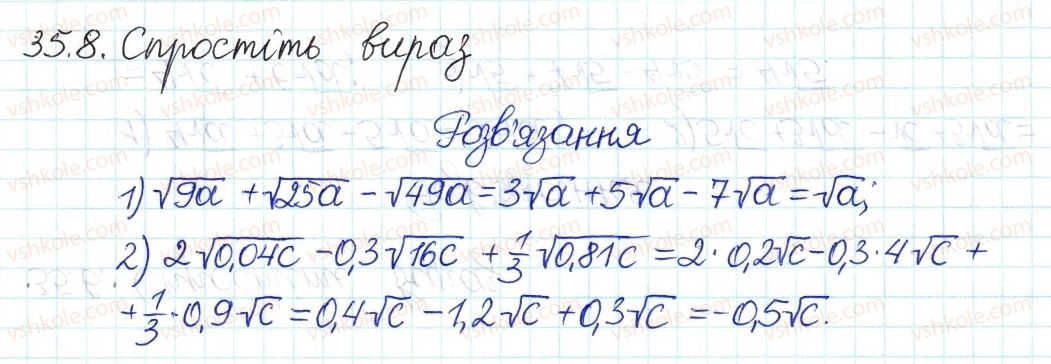 35.8. Спростіть вираз
Розв'язання
1) √9a + √25a - √49a = 3√a + 5√a - 7√a = √a;
2) 2√0,04c - 0,3√16c + 1/3 √0,81c = 2 · 0,2√c - 0,3 · 4√c +
+ 1/3 · 0,9√c = 0,4√c - 1,2√c + 0,3√c = -0,5√c.